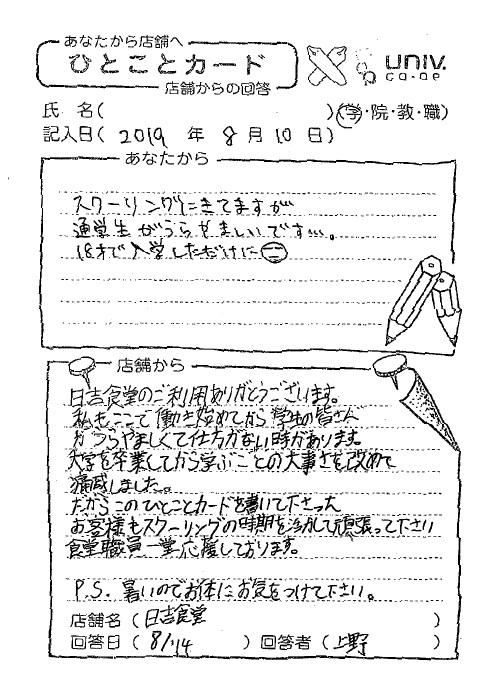 あなたから店舗へ
ひとことカード
店舗からの回答
UNIV.
CO-OP
氏 名( )(学・院・教・職)
記入日( 2019 年 8 月 10 日)
あなたから
スクーリングにきてますが
通学生がうらやましいです…。
18才で入学しただけに
店舗から
日吉食堂のご利用ありがとうございます。
私もここで働き始めてから学生の皆さん
がうらやましくて仕方がない時があります。
大学を卒業してから学ぶことの大事さを改めて
痛感しました。
だからこのひとことカードを書いて下さった
お客様もスクーリングの時期を活かして頑張って下さい
食堂職員一堂応援しております。
P.S. 暑いのでお体にお気をつけて下さい。
店舗名(日吉食堂 )
回答日( 8/14 )回答者(上野 )